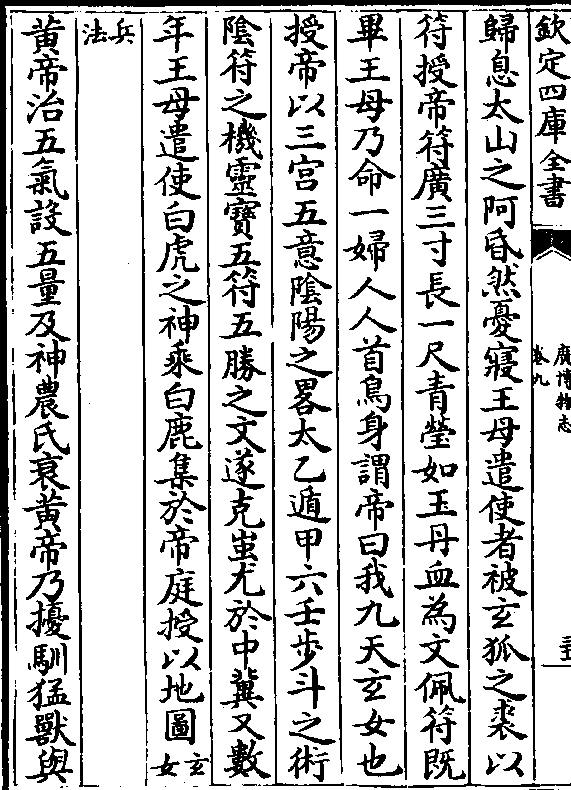 欽定四庫全書
廣博物志
卷九
歸息太山之阿昏然憂寢王母遣使者被玄狐之裘以
符授帝符廣三寸長一尺青瑩如玉丹血為文佩符既
畢王母乃命一婦人人首鳥身謂帝曰我九天玄女也
授帝以三宮五意陰陽之畧太乙遁甲六壬步斗之術
陰符之機靈寶五符五勝之文遂克蚩尤於中冀又數
年王母遣使白虎之神乘白鹿集於帝庭授以地圖玄女
兵法
黃帝治五氣設五量及神農氏衰黃帝乃擾馴猛獸與